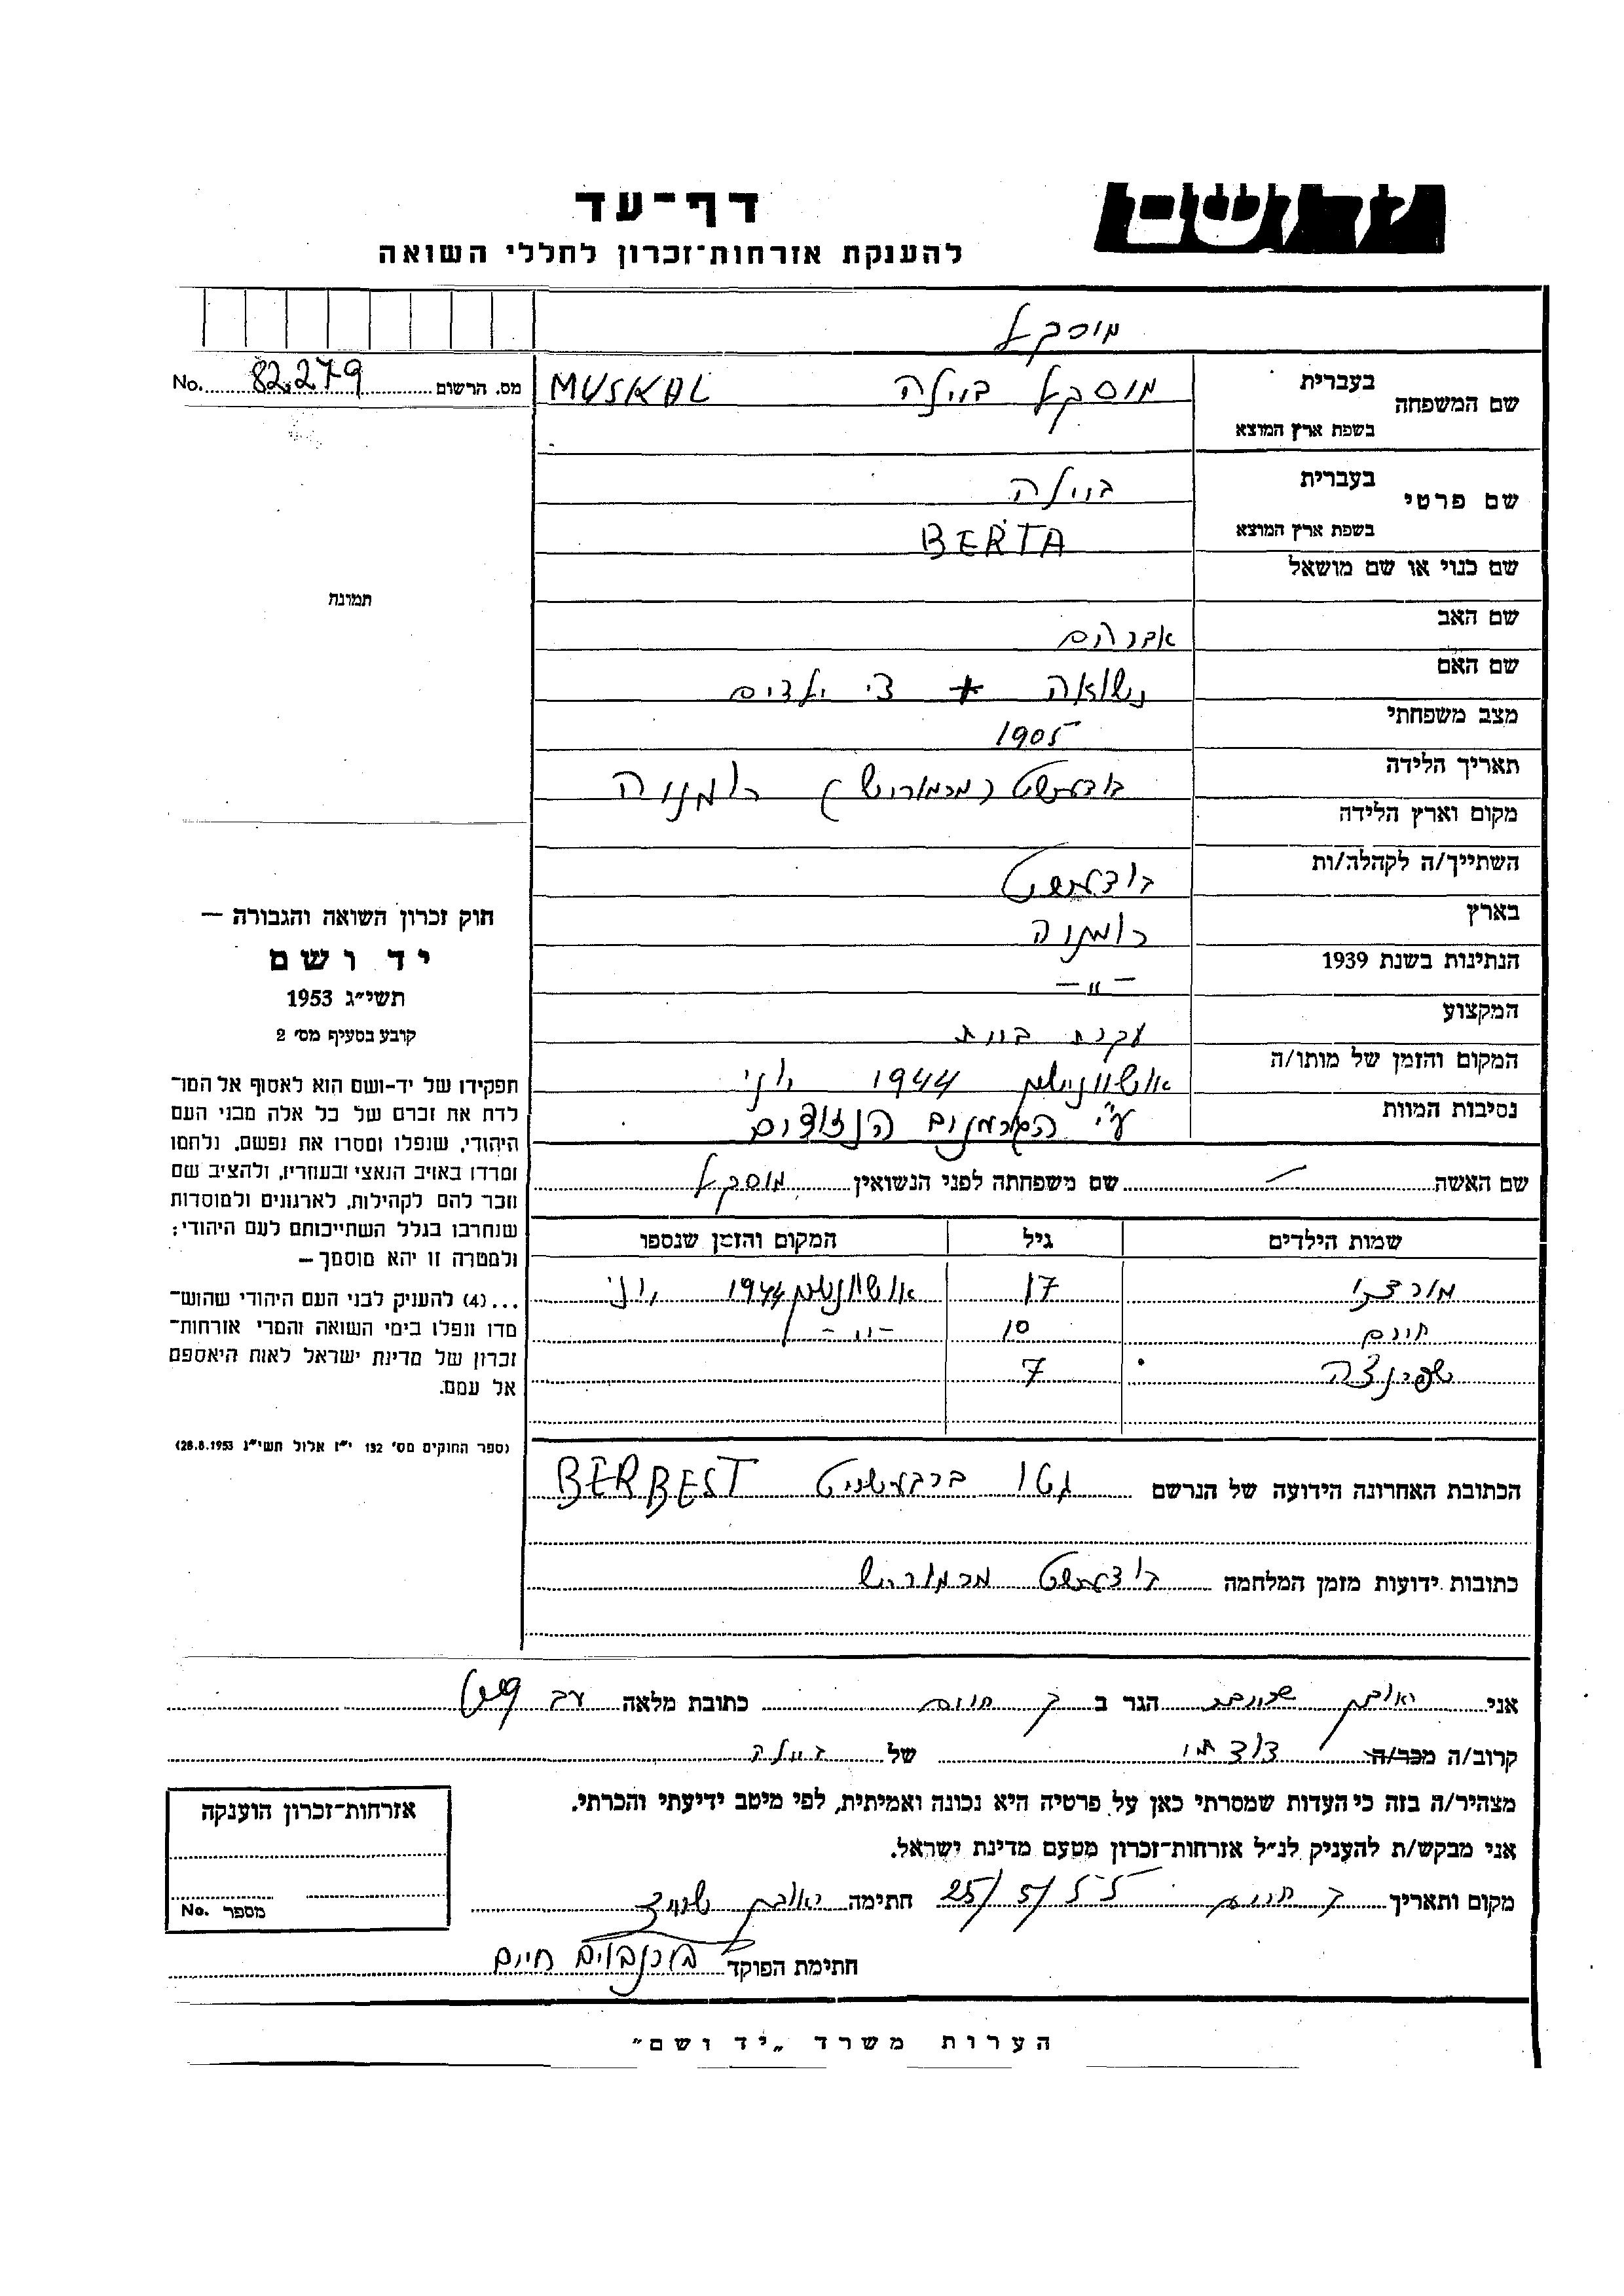 דף-עד
ידושם
להענקת אזרחות-זכרון לחללי השואה
מוסקל
מס. הרשום 82.279 No.
שם המשפחה
בעברית מוסקל ביילה MUSKAL
בשפת ארץ המוצא
שם פרטי
בעברית ביילה
בשפת ארץ המוצא BERTA
שם כנוי או שם מושאל
שם האב אברהם
שם האם
מצב משפחתי נשואה + ילדים
תאריך הלידה 1905
מקום וארץ הלידה (מרמורש) רומניה
השתייך/ה לקהלה/ות
בארץ רומניה
הנתינות בשנת 1939 -"-
המקצוע עקרת בית
המקום והזמן של מותו/ה 1944 יוני
נסיבות המוות ע"י הגרמנים הנאצים
שם האשה שם משפחתה לפני הנשואין מוסקל
שמות הילדים גיל המקום והזמן שנספו
17 1944 יוני
חיים 10 -"-
שפרנצה 7
הכתובת האחרונה הידועה של הנרשם גטו BERBEST
כתובות ידועות מזמן המלחמה מרמורש
תמונה
חוק זכרון השואה והגבורה —
יד ושם
תשי"ג 1953
קובע בסעיף מס' 2
תפקידו של יד-ושם הוא לאסוף אל המו־
לדת את זכרם של כל אלה מבני העם
היהודי, שנפלו ומסרו את נפשם, נלחמו
ומרדו באויב הנאצי ובעוזריו, ולהציב שם
וזכר להם לקהילות, לארגונים ולמוסדות
שנחרבו בגלל השתייכותם לעם היהודי;
ולמטרה זו יהא מוסמך—
...(4) להעניק לבני העם היהודי שהוש־
מדו ונפלו בימי השואה והמרי אזרחות־
זכרון של מדינת ישראל לאות היאספם
אל עמם.
(ספר החוקים מס' 132 י"ז אלול תשי"ג 28.8.1953)
אני הגר ב כתובת מלאה
קרוב/ה מכר/ה של ביילה
מצהיר/ה בזה כי העדות שמסרתי כאן על פרטיה היא נכונה ואמיתית, לפי מיטב ידיעתי והכרתי.
אני מבקש/ת להעניק לנ"ל אזרחות-זכרון מטעם מדינת ישראל.
מקום ותאריך 25/5/55 חתימה
חתימת הפוקד חיים
אזרחות-זכרון הוענקה
מספר No.
הערות משרד „יד ושם"